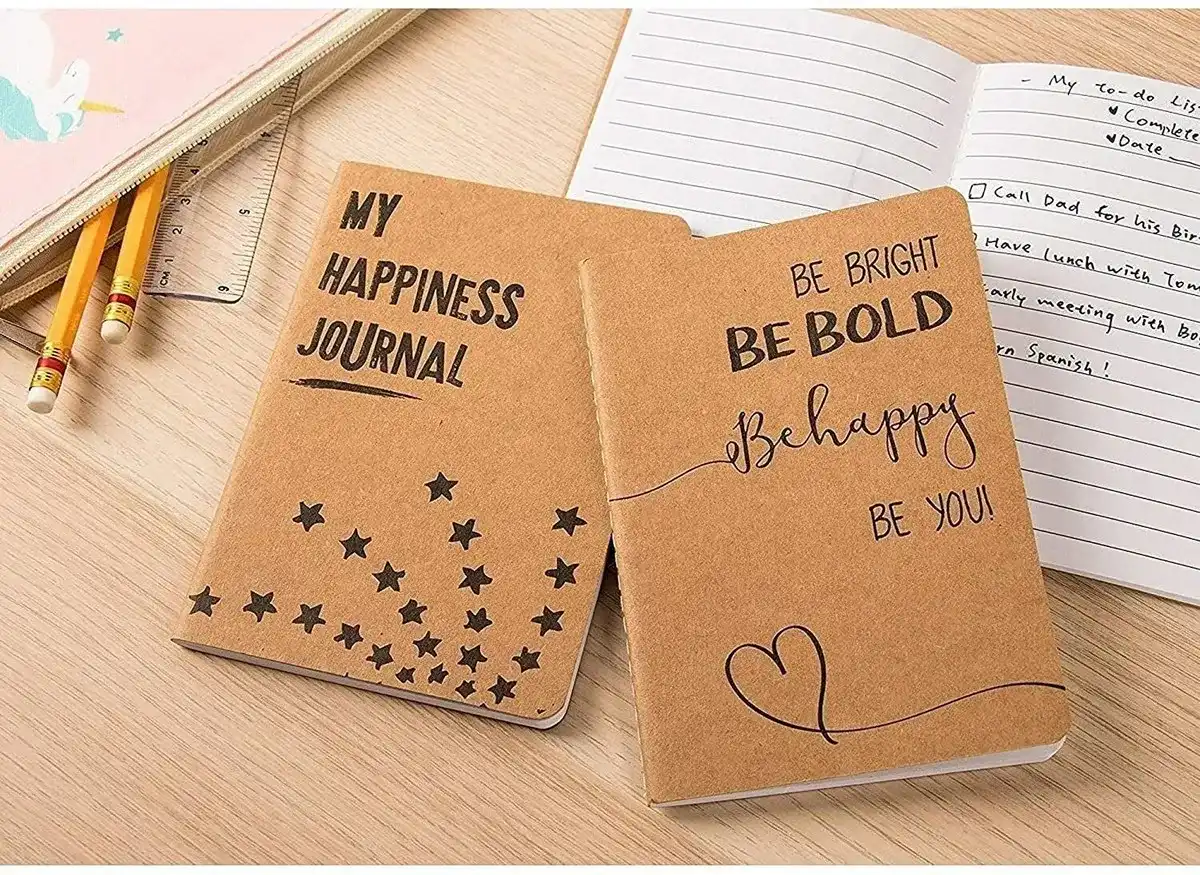 MY
HAPPINESS
JOURNAL
BE BRIGHT
BE BOLD
Be happy
BE YOU!
- My to-do
Complete
Date
Call Dad for his
Have lunch with
meeting with
Spanish!
CM 1
2
3
5
6